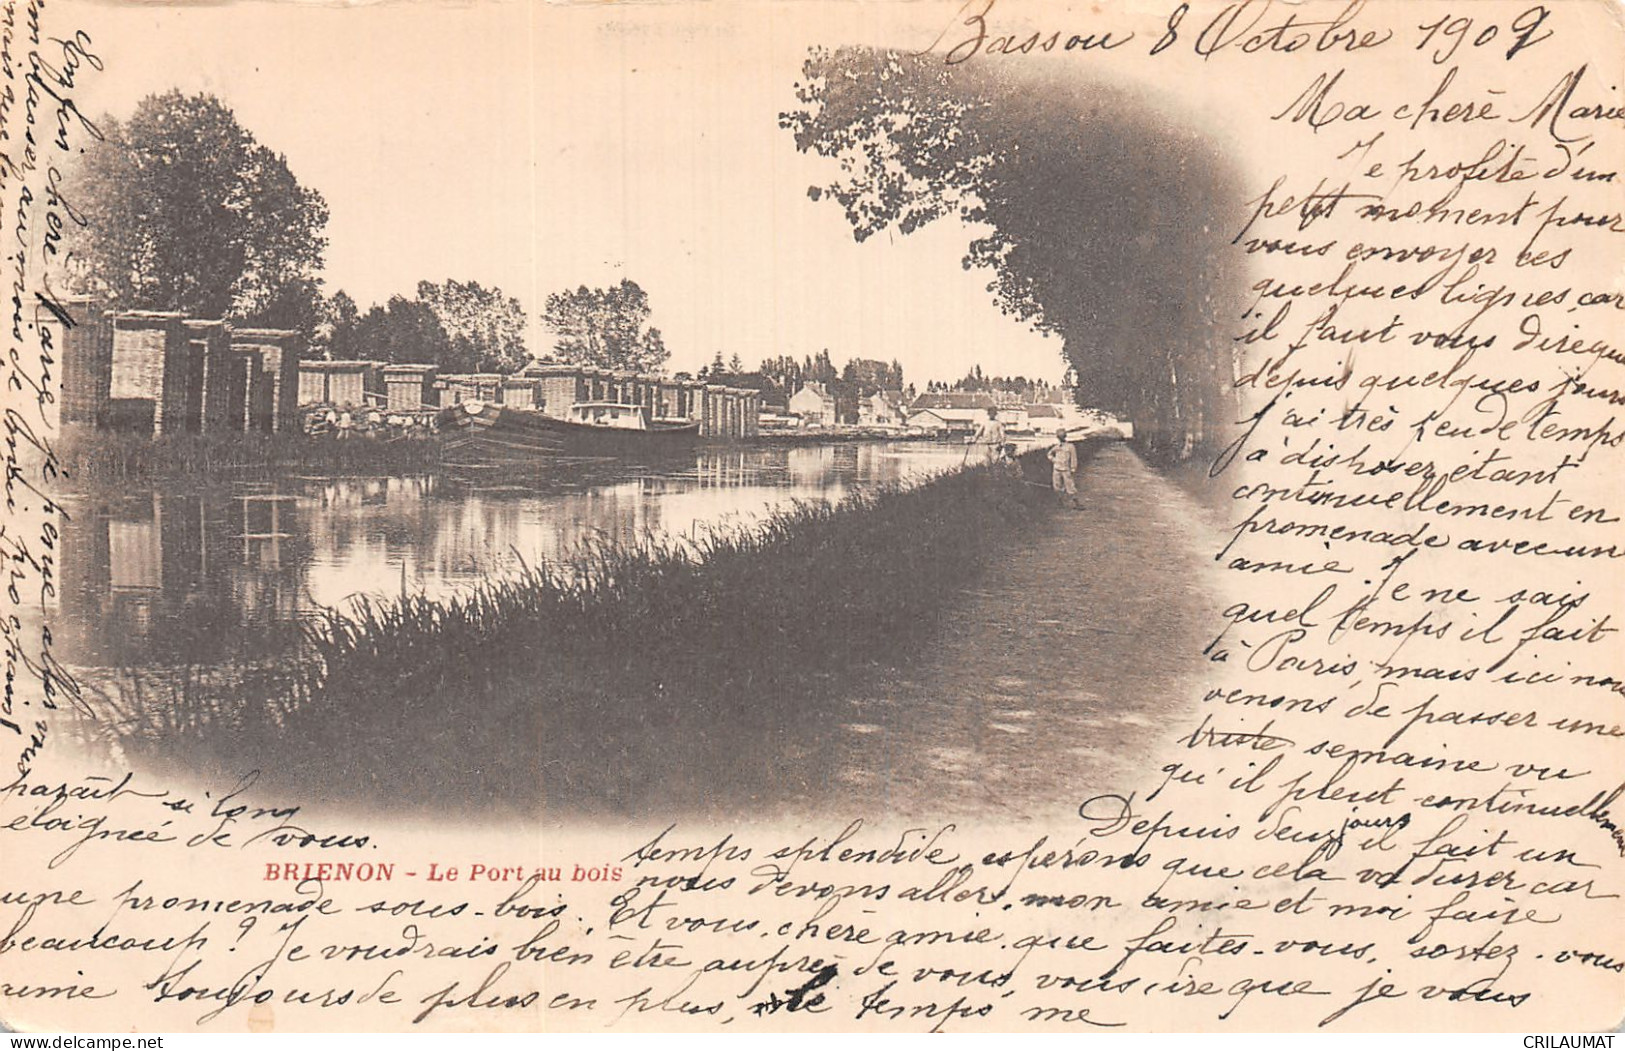 Bassou 8 Octobre 1902
Ma cherè Marie
Je profite d'un
petit moment pour
vous envoyer ces
quelques lignes, car
il faut vous dire que
depuis quelques jours
j'ai très peu de temps
à disposer, étant
continuellement en
promenade avec un
amie. Je ne sais
quel temps il fait
à Paris, mais ici nous
venons de passer une
triste semaine vu
qu'il pleut continuellement
Depuis deux jours il fait un
temps splendide, espérons que cela va durer car
nous devons aller, mon amie et moi faire
une promenade sous-bois. Et vous, chère amie, que faites-vous, sortez-vous
beaucoup? Je voudrais bien être auprès de vous, vous dire que je vous
aime toujours de plus en plus, le temps me
parait si long
éloignée de vous.
Enfin chère Marie je pense aller vous
embrasser au mois de
BRIENON - Le Port au bois
CRILAUMAT